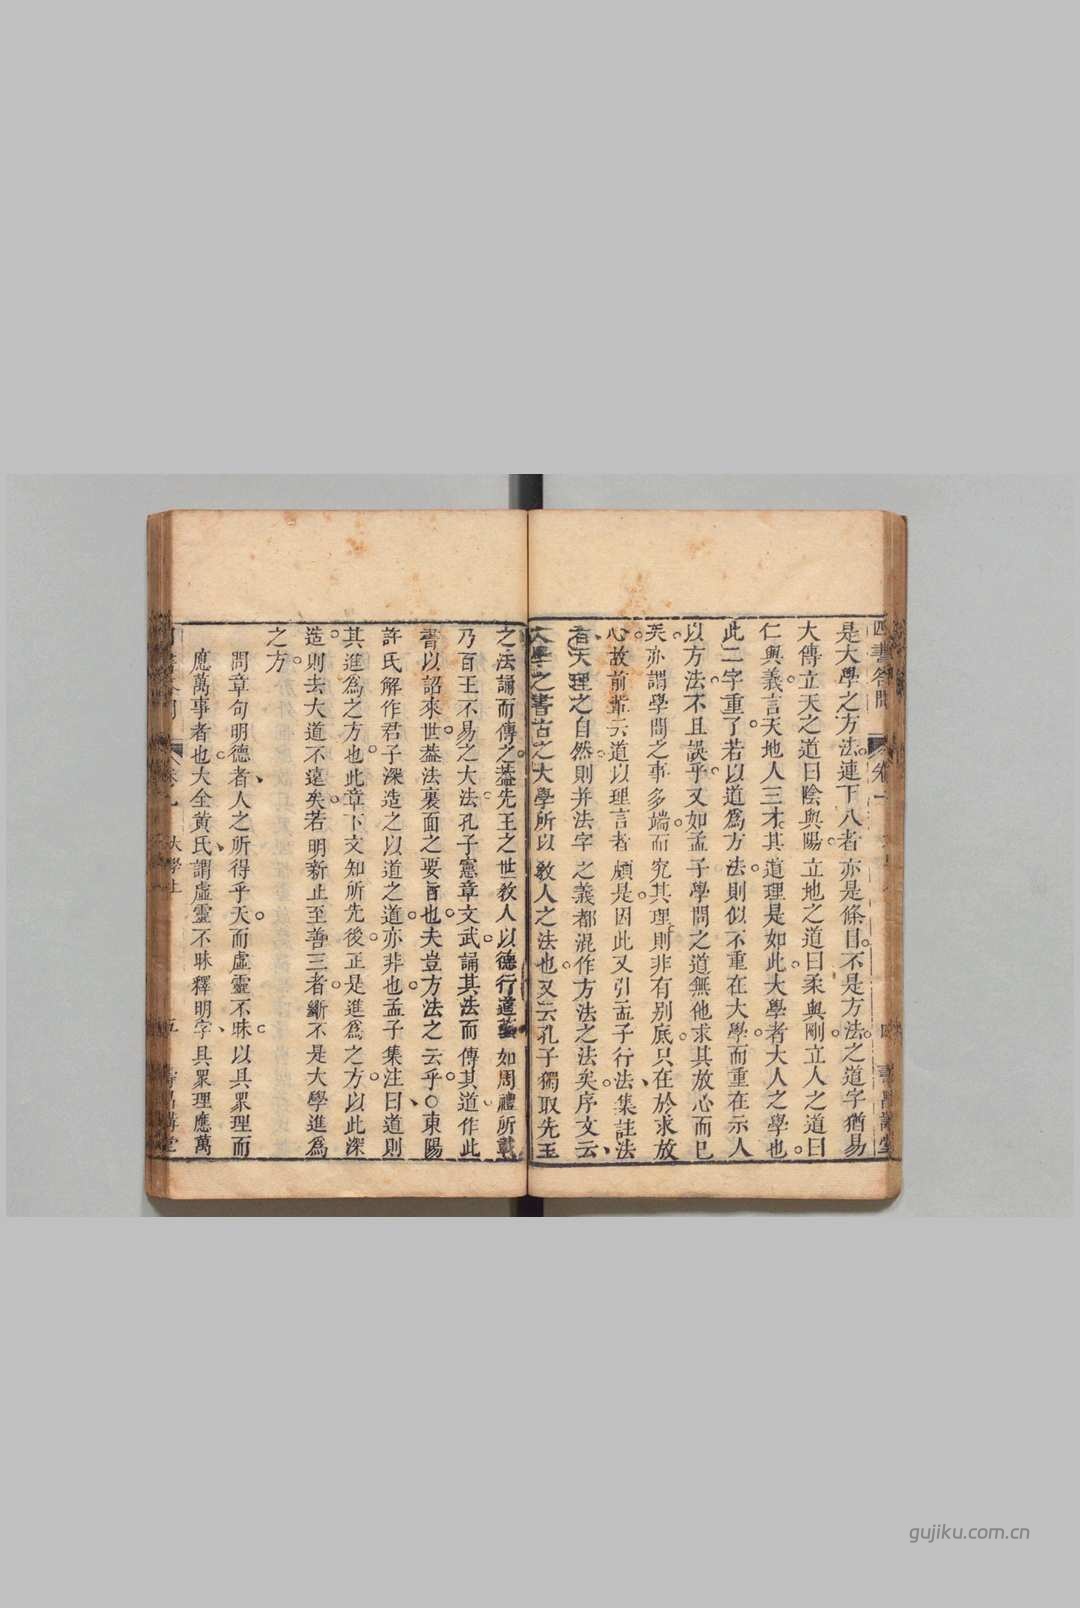 四書答問 卷一
是大學之方法連下八者亦是條目不是方法之道字猶易
大傳立天之道曰陰與陽立地之道曰柔與剛立人之道曰
仁與義言天地人三才其道理是如此大學者大人之學也
此二字重了若以道爲方法則似不重在大學而重在示人
以方法不且誤乎又如孟子學問之道無他求其放心而已
矣亦謂學問之事多端而究其理則非有别底只在於求放
心故前輩云道以理言者頗是因此又引孟子行法集註法
者天理之自然則并法字之義都混作方法之法矣序文云
大學之書古之大學所以敎人之法也又云孔子獨取先王
之法誦而傳之葢先王之世敎人以德行道藝如周禮所載
乃百王不易之大法孔子憲章文武誦其法而傳其道作此
書以詔來世葢法裏面之要旨也夫豈方法之云乎○東陽
許氏解作君子深造之以道之道亦非也孟子集注曰道則
其進爲之方也此章下文知所先後正是進爲之方以此深
造則去大道不遠矣若明新止至善三者斷不是大學進爲
之方
問章句明德者人之所得乎天而虛靈不昧以具衆理而
應萬事者也大全黃氏謂虛靈不昧釋明字具衆理應萬
大學上 五
gujiku.com.cn